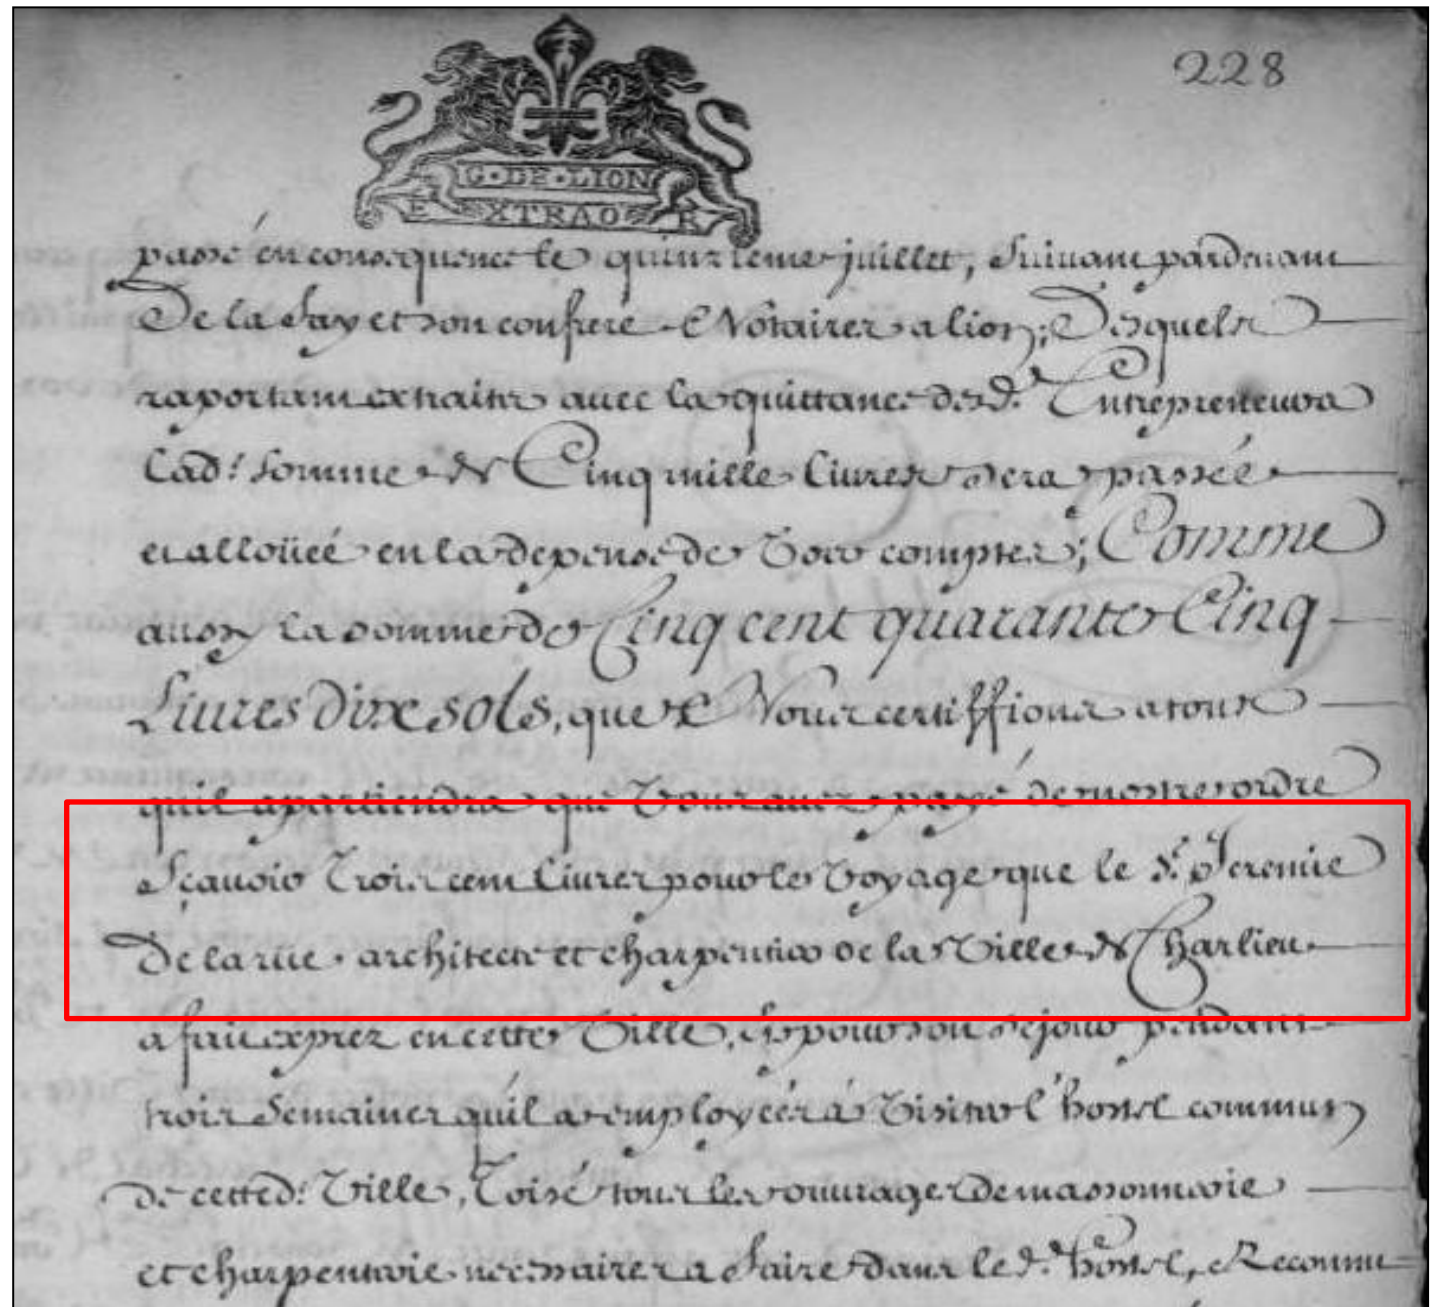 228
G·DE·LION
EXTRAOR
passé en consequence le quinzieme juillet, suivant pardevant
De la fay et son confrere Notaires a lion; Desquels
raportant extraits avec la quittance desd. Entrepreneurs
Lad.t somme de Cinq mille livres sera passée
et alloüéé en la depense de vos comptes; Comme
aussy la somme de Cinq cent quarante Cinq
Livres dix sols, que Nous certiffions a tous
quil apartiendra que vous avez payé de nostre ordre
Sçavoir Trois cent livres pour le voyage que le Sr. Jeremie
De la rue architecte et charpentier de la Ville de Charlieu
a fait exprez en cette Ville, Et pour son sejour pendant
trois semaines quil a employéés à visiter l'hostel commun
de cetted. ville, Toisé tous les ouvrages de massonnerie
et charpenterie necessaires a faire dans led. hostel, Reconnu